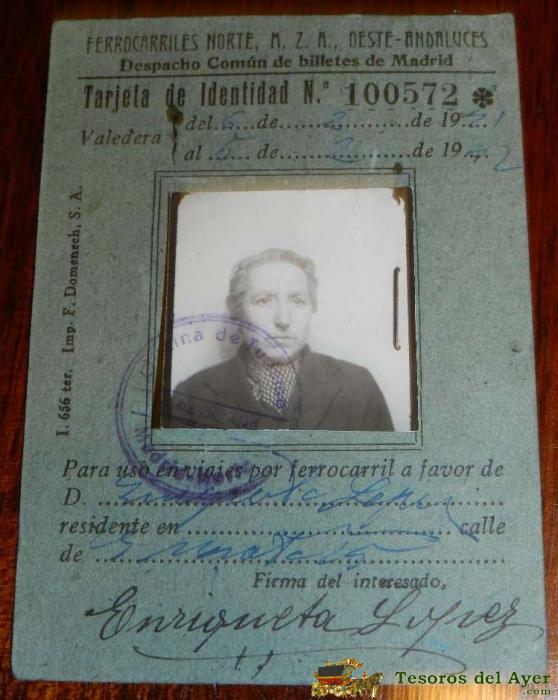 FERROCARRILES NORTE, M. Z. A., OESTE-ANDALUCES
Despacho Común de billetes de Madrid
Tarjeta de Identidad N.º 100572 ✻
Valedera
del 6 de 2 de 19
al 5 de 2 de 19
I. 656 ter. Imp. F. Domenech, S. A.
Para uso en viajes por ferrocarril a favor de
D. Enriqueta Lopez
residente en calle
de
Firma del interesado,
Enriqueta Lopez
Tesoros del Ayer
.com